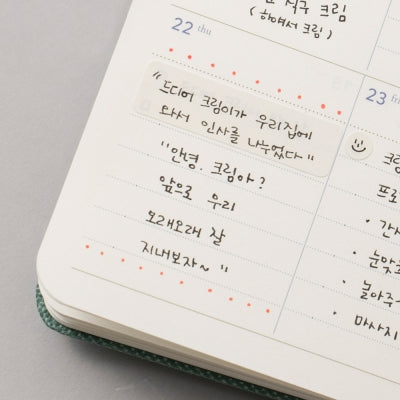 식구 크림
(하얘서 크림)
22 thu
"드디어 크림이가 우리집에
와서 인사를 나누었다"
"안녕. 크림아?
앞으로 우리
오래오래 잘
지내보자~"
23
크림
프로
• 간식
• 눈맞
• 놀아주
• 마사지